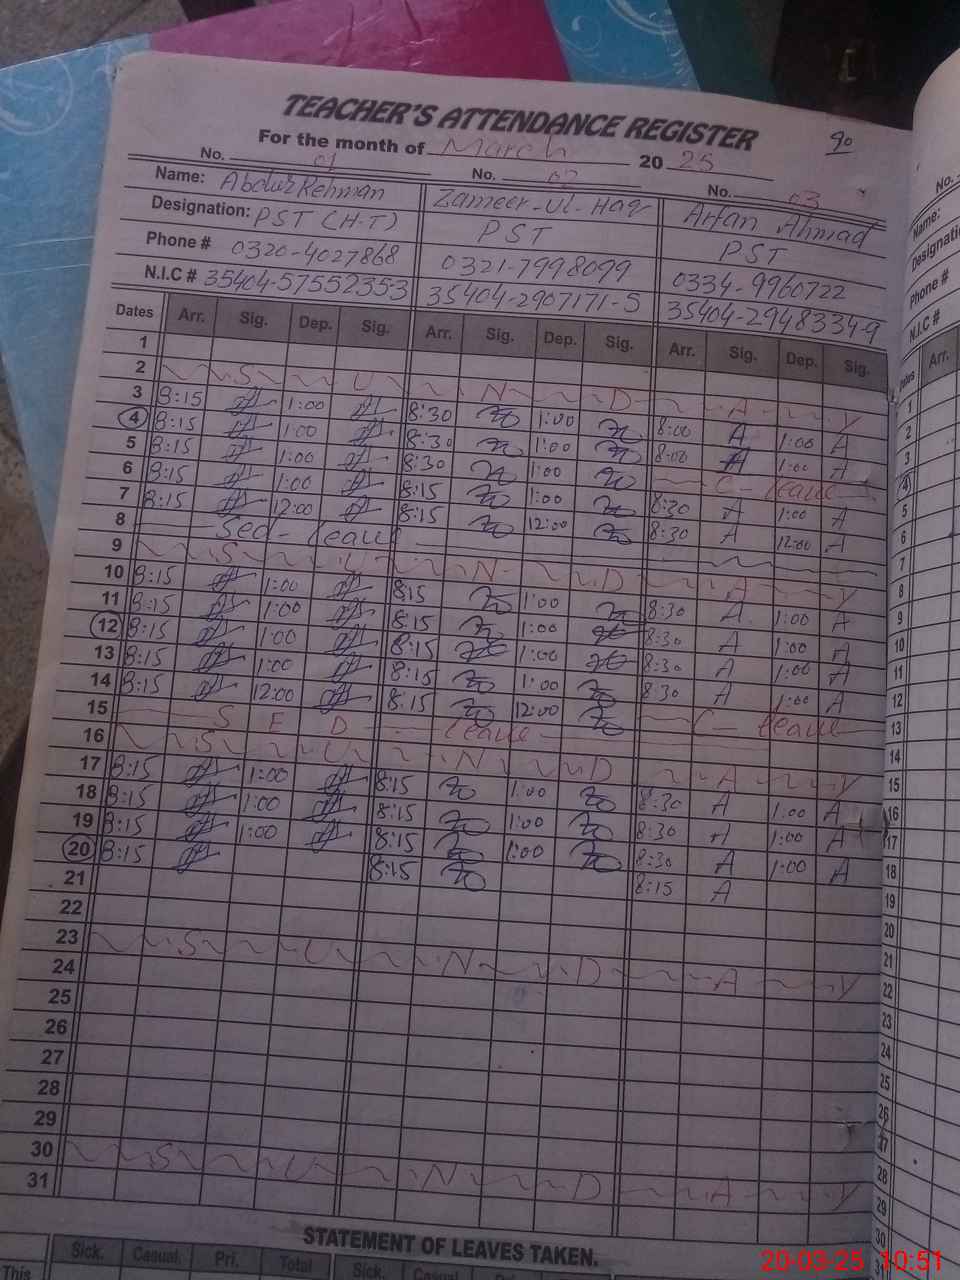 TEACHER'S ATTENDANCE REGISTER
90
For the month of March 2025
No. 01 No. 02 No. 03
Name: Abdur Rehman Zameer-Ul-Haq Arfan Ahmad
Designation: PST (H-T) PST PST
Phone # 0320-4027868 0321-7998099 0334-9960722
N.I.C # 35404-5755235-3 35404-2907171-5 35404-2948334-9
Dates Arr. Sig. Dep. Sig. Arr. Sig. Dep. Sig. Arr. Sig. Dep. Sig.
1
2 S U N D A Y
3 8:15 1:00 8:30 1:00 8:00 A 1:00 A
4 8:15 1:00 8:30 1:00 8:00 A 1:00 A
5 8:15 1:00 8:30 1:00 C-leave
6 8:15 1:00 8:15 1:00 8:30 A 1:00 A
7 8:15 12:00 8:15 12:00 8:30 A 12:00 A
8 Sed-leave
9 S U N D A Y
10 8:15 1:00 8:15 1:00 8:30 A 1:00 A
11 8:15 1:00 8:15 1:00 8:30 A 1:00 A
12 8:15 1:00 8:15 1:00 8:30 A 1:00 A
13 8:15 1:00 8:15 1:00 8:30 A 1:00 A
14 8:15 12:00 8:15 12:00 C-leave
15 S E D leave
16 S U N D A Y
17 8:15 1:00 8:15 1:00 8:30 A 1:00 A
18 8:15 1:00 8:15 1:00 8:30 A 1:00 A
19 8:15 1:00 8:15 1:00 8:30 A 1:00 A
20 8:15 8:15 8:15 A
21
22
23 S U N D A Y
24
25
26
27
28
29
30 S U N D A Y
31
STATEMENT OF LEAVES TAKEN.
Sick. Casual. Pri. Total Sick. Casual. Pri.
This
No.
Name:
Designation
Phone #
N.I.C #
Dates Arr.
1
2
3
4
5
6
7
8
9
10
11
12
13
14
15
16
17
18
19
20
21
22
23
24
25
26
27
28
29
30
31
20-03-25 10:51